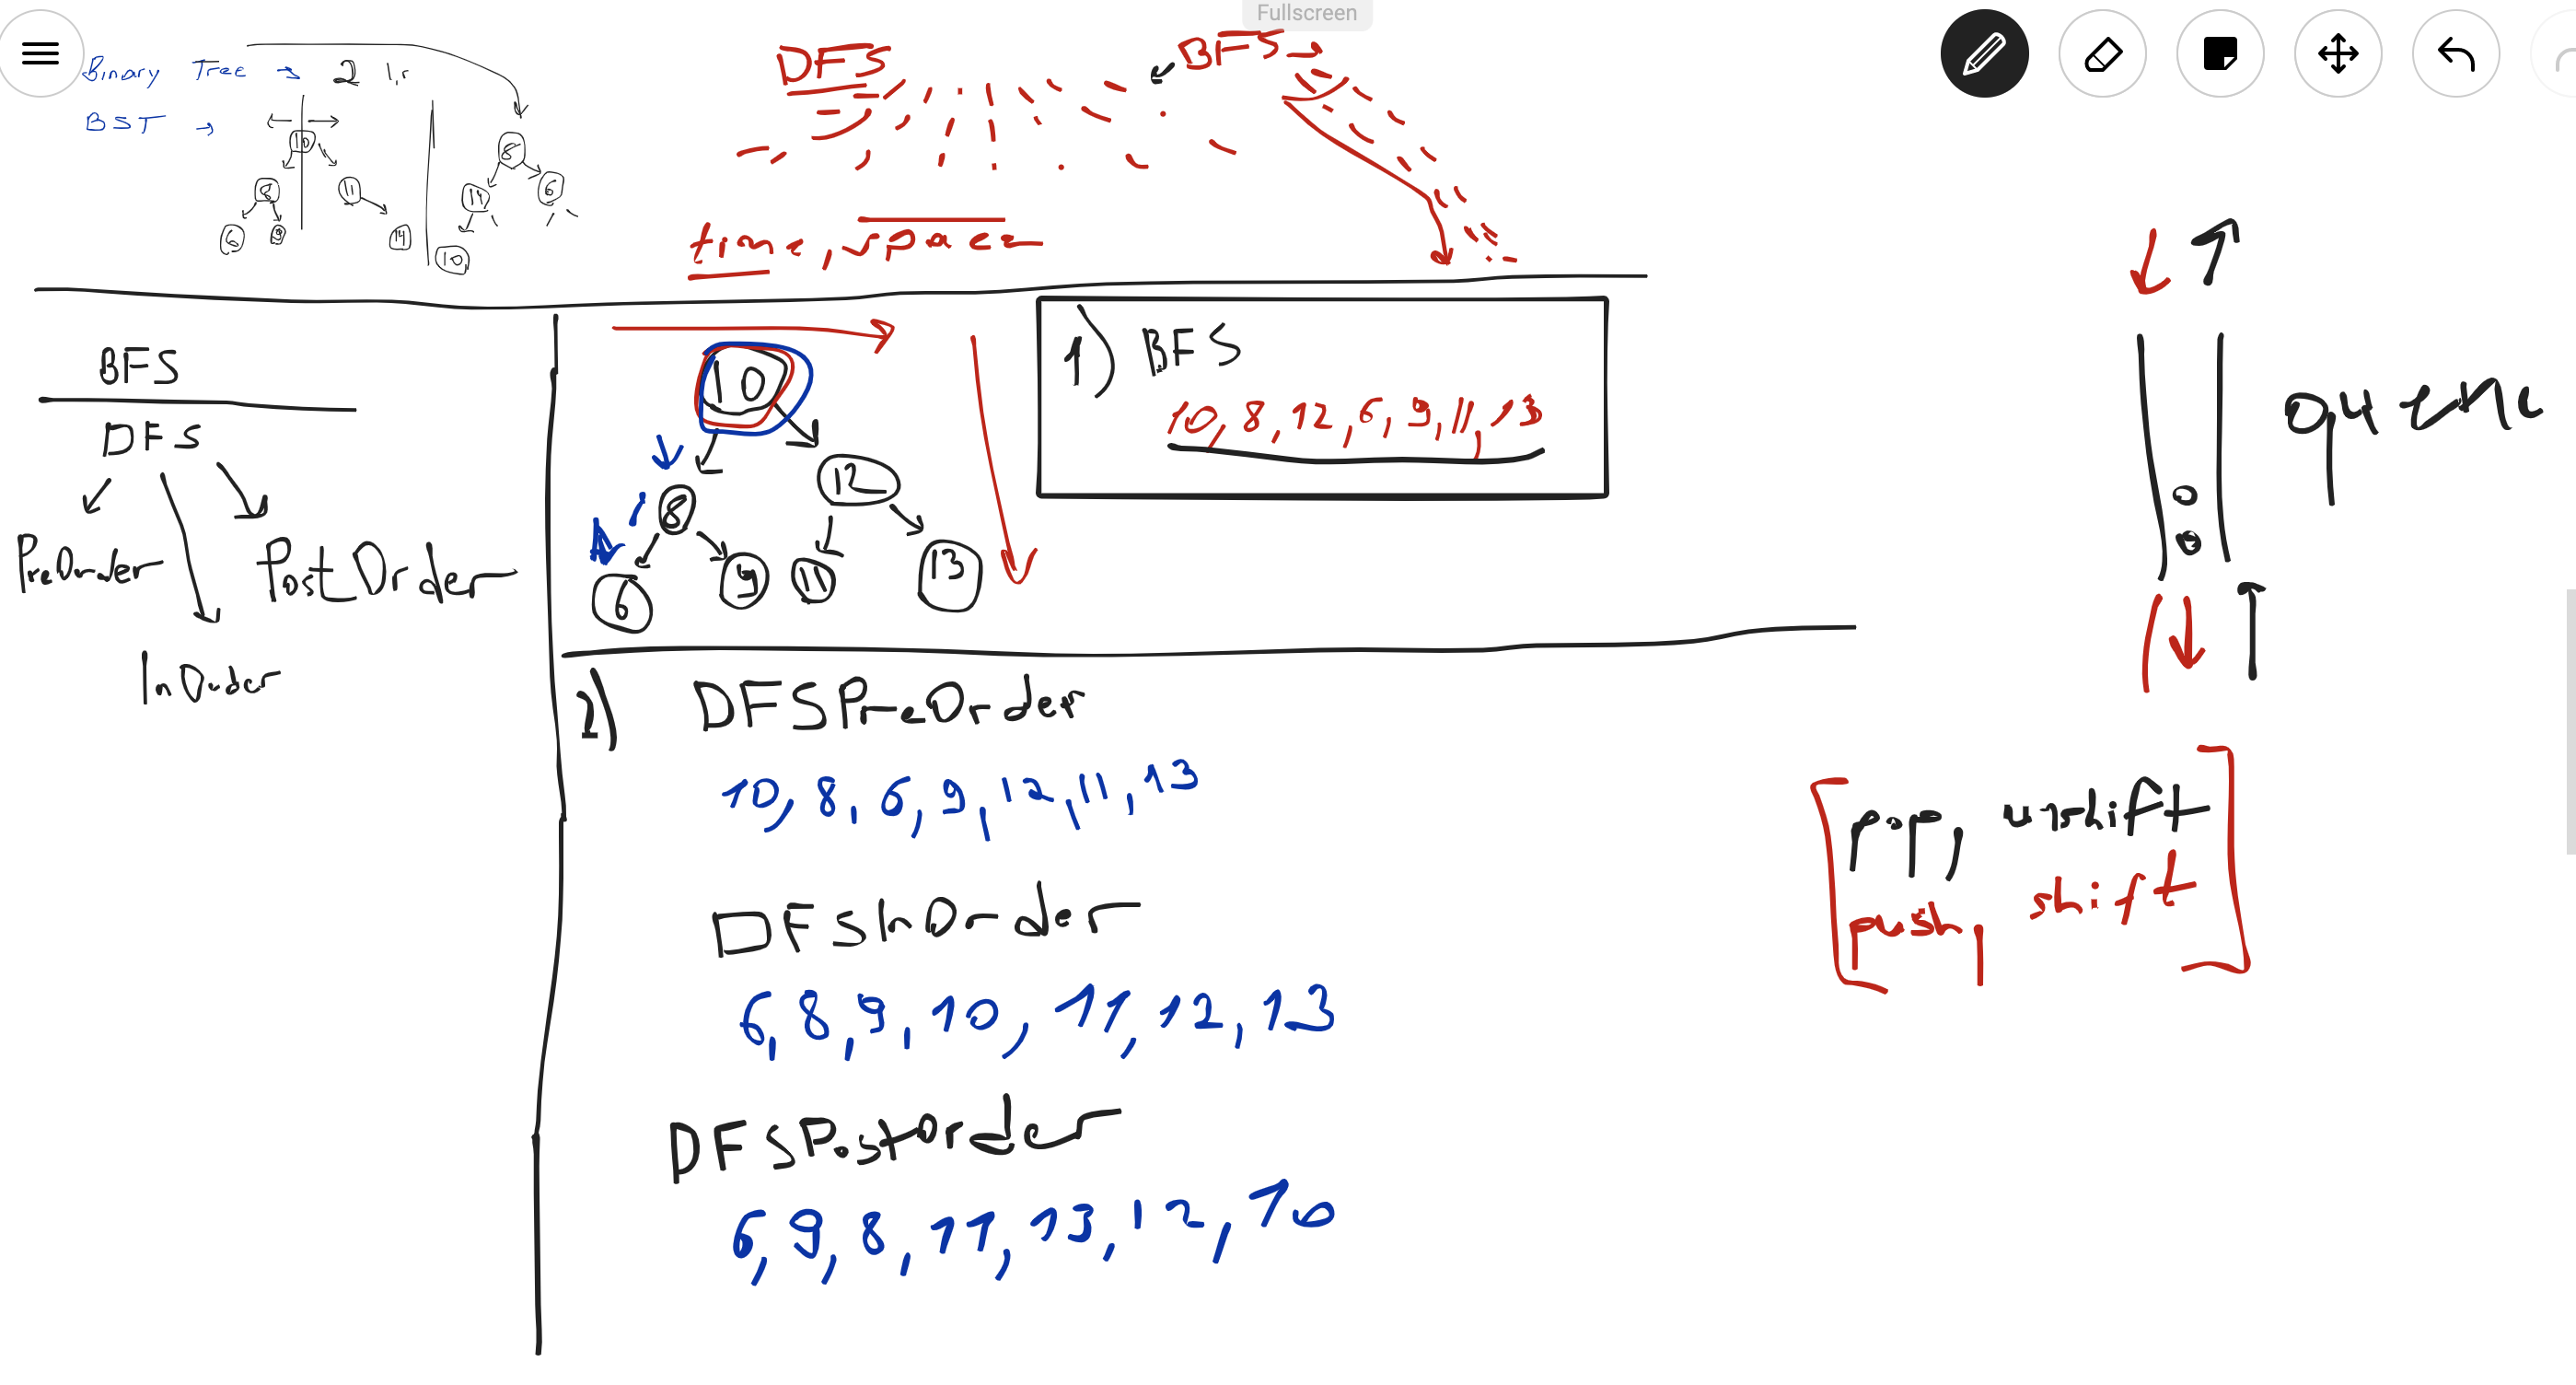 Fullscreen
Binary Tree → 2 l,r
BST →
10
8 11
6 9 14
8
14 6
10
DFS
BFS →
time, space
BFS
DFS
PreOrder
PostOrder
InOrder
10
8 12
6 9 11 13
1) BFS
10, 8, 12, 6, 9, 11, 13
queue
2) DFSPreOrder
10, 8, 6, 9, 12, 11, 13
DFSInOrder
6, 8, 9, 10, 11, 12, 13
DFSPostOrder
6, 9, 8, 11, 13, 12, 10
pop, unshift
push, shift